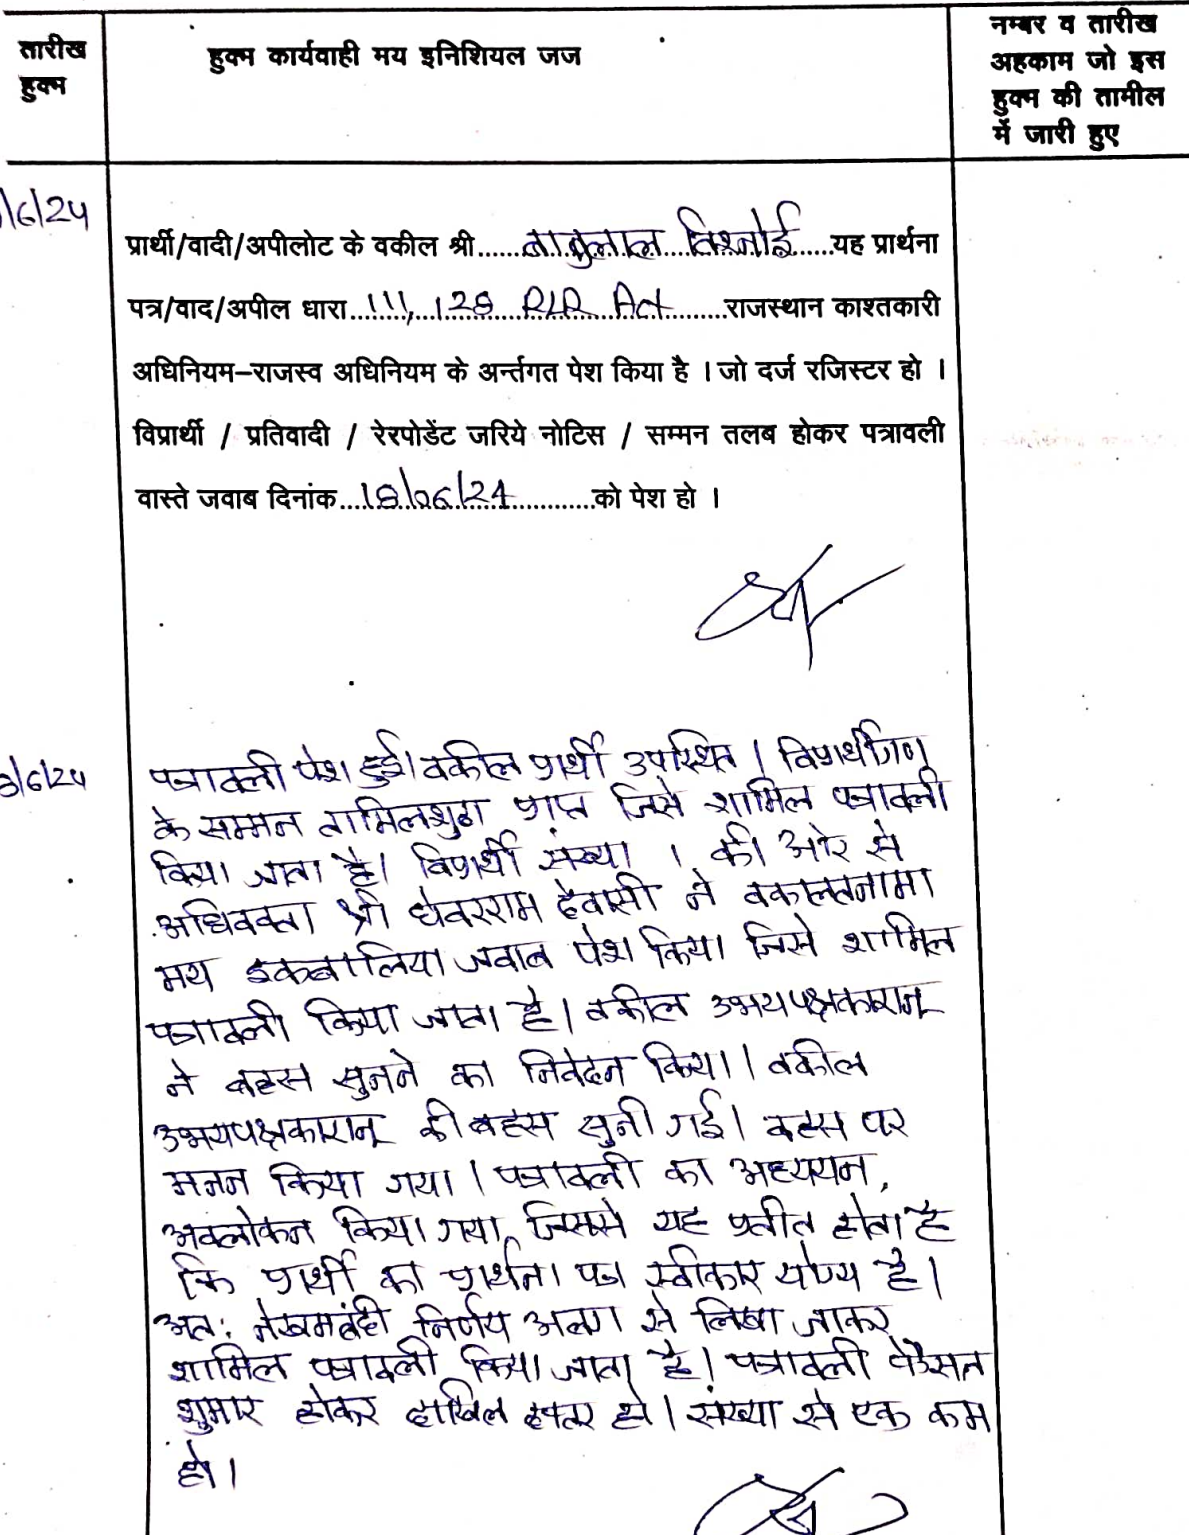 तारीख
हुक्म
हुक्म कार्यवाही मय इनिशियल जज
नम्बर व तारीख
अहकाम जो इस
हुक्म की तामील
में जारी हुए
/6/24
प्रार्थी/वादी/अपीलोट के वकील श्री......बाबुलाल विश्नोई......यह प्रार्थना
पत्र/वाद/अपील धारा...111, 128 RLR Act...राजस्थान काश्तकारी
अधिनियम–राजस्व अधिनियम के अर्न्तगत पेश किया है । जो दर्ज रजिस्टर हो ।
विप्रार्थी / प्रतिवादी / रेरपोडेंट जरिये नोटिस / सम्मन तलब होकर पत्रावली
वास्ते जवाब दिनांक....18/06/24............को पेश हो ।
8/6/24
पत्रावली पेश हुई। वकील प्रार्थी उपस्थित । विप्रार्थीगण
के सम्मन तामिलशुदा प्राप्त जिसे शामिल पत्रावली
किया जाता है। विप्रार्थी संख्या 1 की ओर से
अधिवक्ता श्री घेवरराम देवासी ने वकालतनामा
मय इकबालिया जवाब पेश किया जिसे शामिल
पत्रावली किया जाता है। वकील उभयपक्षकारान्
ने बहस सुनने का निवेदन किया। वकील
उभयपक्षकारान् की बहस सुनी गई। बहस पर
मनन किया गया। पत्रावली का अध्ययन,
अवलोकन किया गया, जिससे यह प्रतीत होता है
कि प्रार्थी का प्रार्थना पत्र स्वीकार योग्य है।
अतः निर्णय अलग से लिखा जाकर
शामिल पत्रावली किया जाता है। पत्रावली फैसल
शुमार होकर दाखिल दफ्तर हो। संख्या से एक कम
हो।